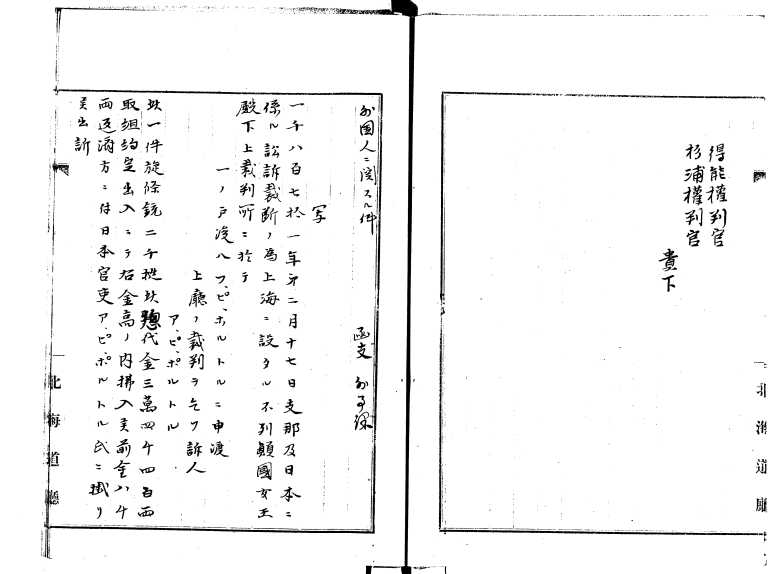 得能權判官
杉浦權判官
貴下
北海道廳
外国人ニ関スル件
函支 外事課
写
一千八百七拾一年第二月十七日支那及日本ニ
係ル訟訴裁断ノ為上海ニ設タル不列顛國女王
殿下上裁判所ニ於テ
一ノ戸渡ハフ・ピ・ホルトルニ申渡
上廳ノ裁判ヲ乞フ訴人
ア・ピ・ポルトル
此一件旋條銃二千挺此惣代金三萬四千四百両
取組約定出入ニテ右金高ノ内拂入之前金八千
両返済方ニ付日本官吏ア・ピ・ポルトル氏ニ掛リ
之出訴
北海道廳